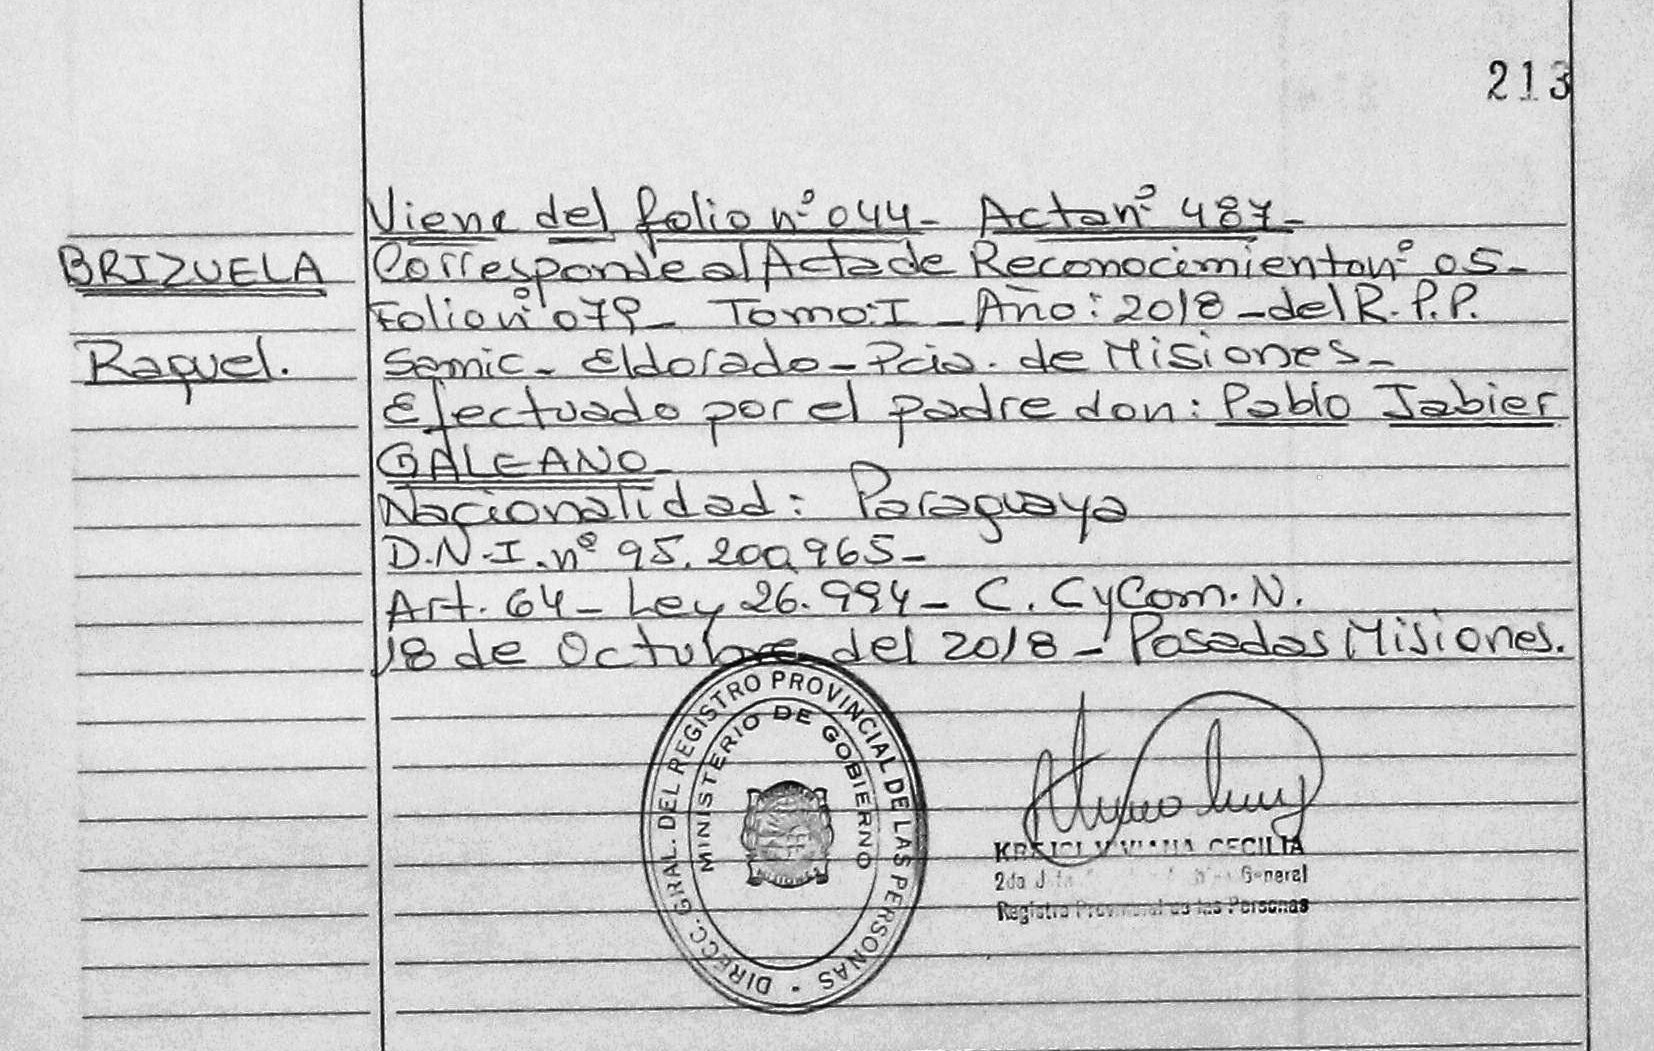 213
Viene del folio nº 044- Acta nº 487-
BRIZUELA
Corresponde al Acta de Reconocimiento nº 05-
Folio nº 079- Tomo: I - Año: 2018 - del R.P.P.
Raquel.
Samic- Eldorado- Pcia. de Misiones-
Efectuado por el padre don: Pablo Jabier
GALEANO-
Nacionalidad: Paraguaya
D.N.I. nº 95.200.965-
Art. 64- Ley 26.994- C. C y Com. N.
18 de Octubre del 2018- Posadas Misiones.
DIRECC. GRAL. DEL REGISTRO PROVINCIAL DE LAS PERSONAS
MINISTERIO DE GOBIERNO
VIVIANA CECILIA
2da General
Registro Provincial de las Personas